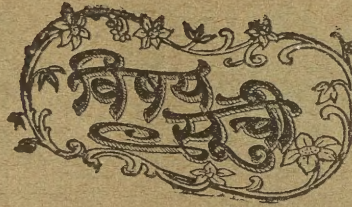 विषय
सूची